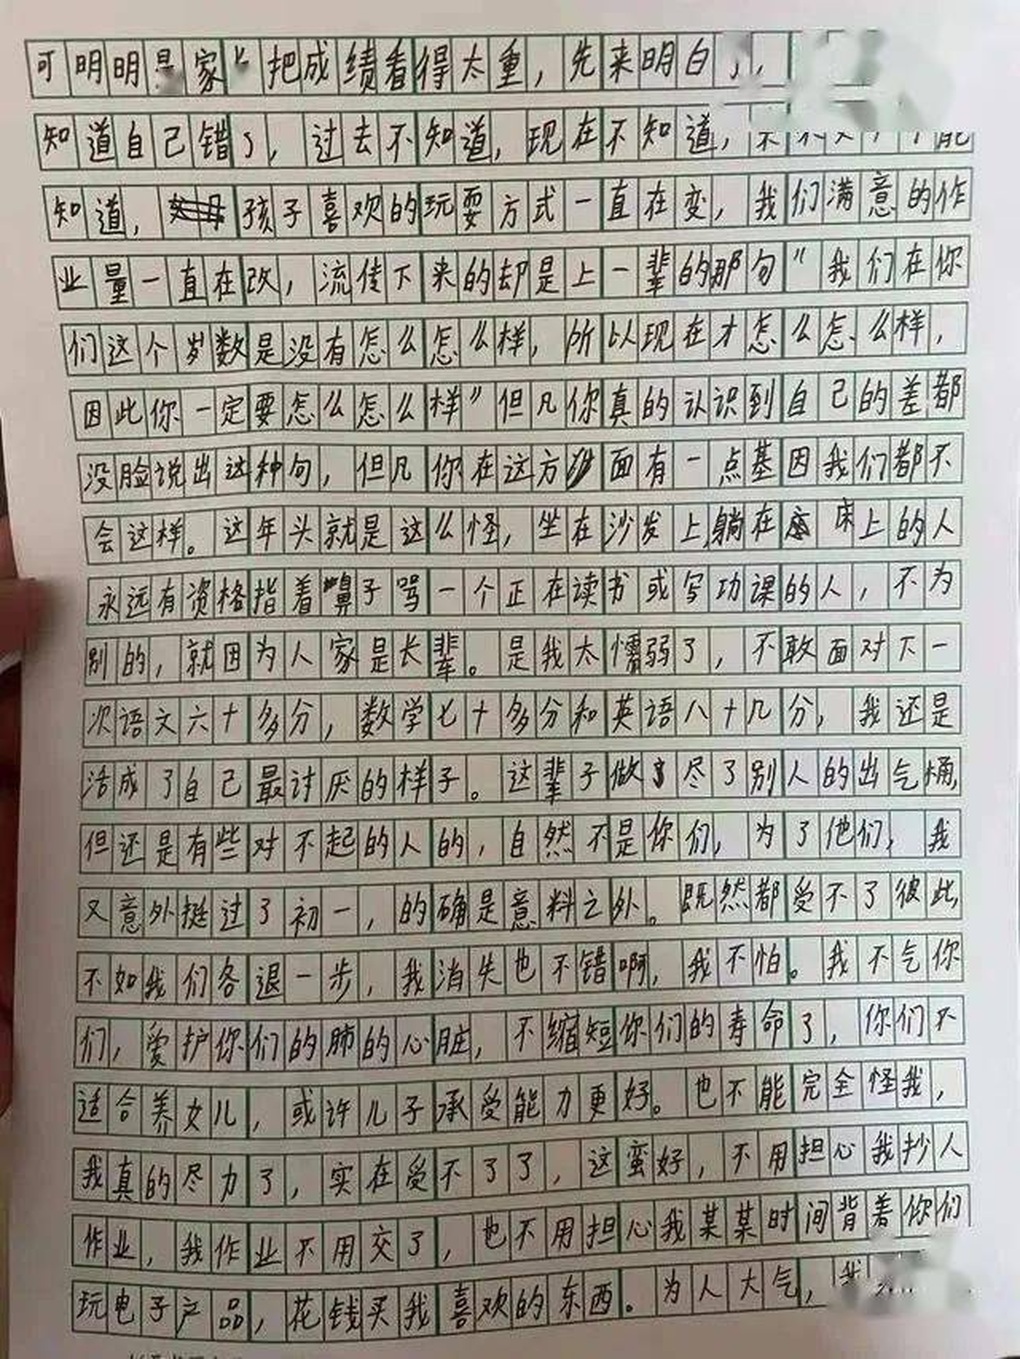 可明明是家长把成绩看得太重，先来明白了，
知道自己错了，过去不知道，现在不知道，
知道，孩子喜欢的玩耍方式一直在变，我们满意的作
业量一直在改，流传下来的却是上一辈的那句“我们在你
们这个岁数是没有怎么怎么样，所以现在才怎么怎么样，
因此你一定要怎么怎么样”但凡你真的认识到自己的差都
没脸说出这种句，但凡你在这方面有一点基因我们都不
会这样。这年头就是这么怪，坐在沙发上躺在床上的人
永远有资格指着鼻子骂一个正在读书或写功课的人，不为
别的，就因为人家是长辈。是我太懦弱了，不敢面对下一
次语文六十多分，数学七十多分和英语八十几分，我还是
活成了自己最讨厌的样子。这辈子做尽了别人的出气桶，
但还是有些对不起的人的，自然不是你们，为了他们，我
又意外挺过了初一，的确是意料之外。既然都受不了彼此，
不如我们各退一步，我消失也不错啊，我不怕。我不气你
们，爱护你们的肺的心脏，不缩短你们的寿命了，你们不
适合养女儿，或许儿子承受能力更好。也不能完全怪我，
我真的尽力了，实在受不了了，这蛮好，不用担心我抄人
作业，我作业不用交了，也不用担心我某某时间背着你们
玩电子产品，花钱买我喜欢的东西。为人大气，我